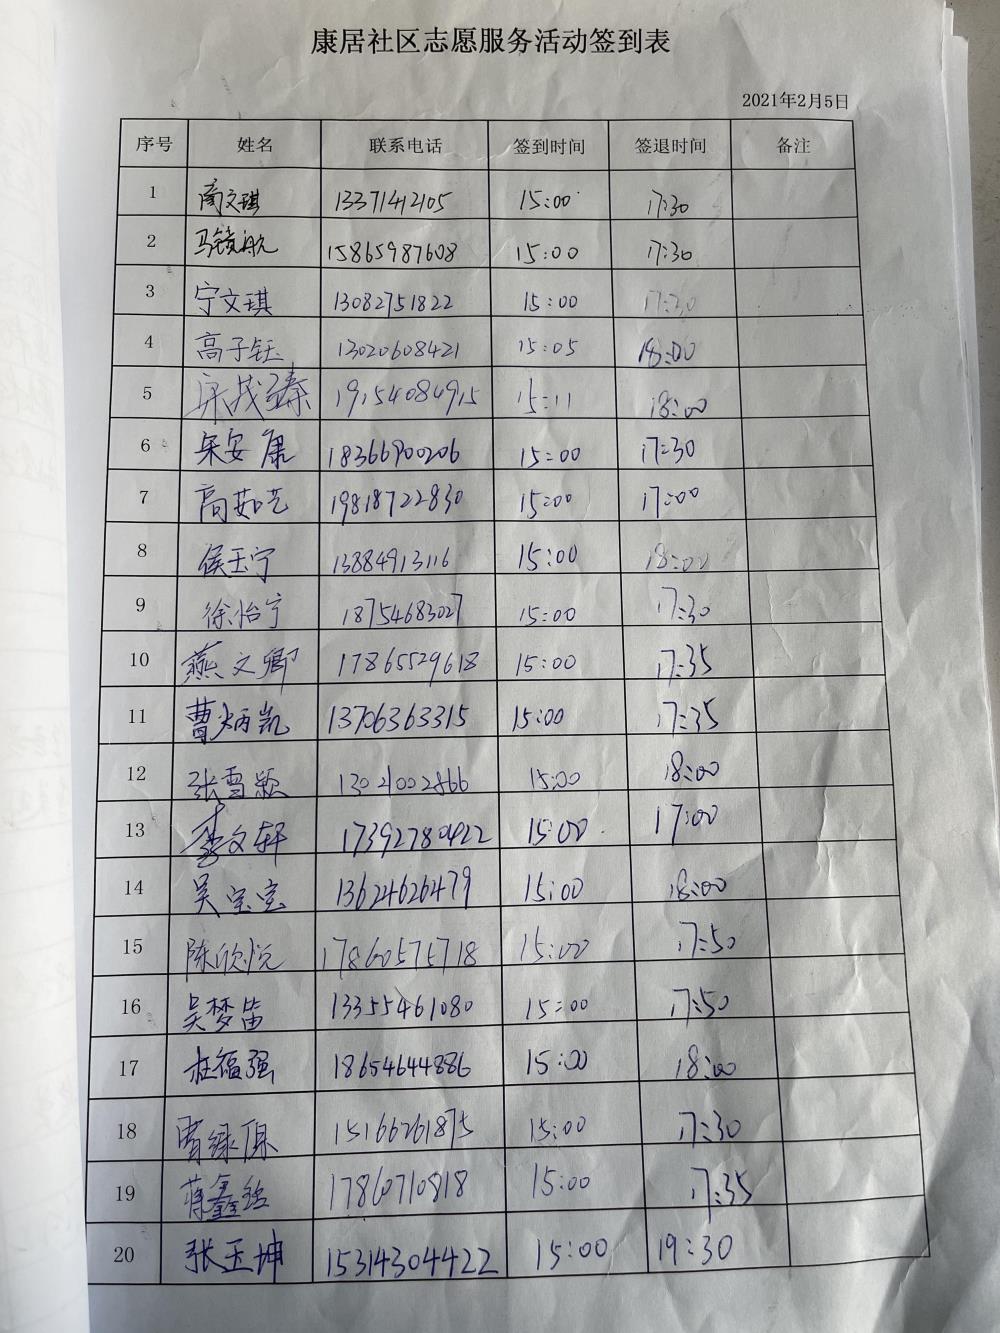 康居社区志愿服务活动签到表
2021年2月5日
序号 姓名 联系电话 签到时间 签退时间 备注
1 高文琪 13371412105 15:00 17:30
2 马镜航 15865987608 15:00 17:30
3 宁文琪 13082751822 15:00 17:30
4 高子钰 13020608421 15:05 18:00
5 19154084915 15:11 18:00
6 朱安康 18366900206 15:00 17:30
7 高茹艺 19818722830 15:00 17:00
8 侯玉宁 13884913116 15:00 18:00
9 徐怡宁 18754683027 15:00 17:30
10 燕文卿 17865529618 15:00 17:35
11 曹炳凯 13706363315 15:00 17:35
12 张雪颖 13021002866 15:00 18:00
13 李文轩 17392780422 15:00 17:00
14 吴宝宝 13624626479 15:00 18:00
15 陈欣悦 17860575718 15:00 17:50
16 吴梦笛 13355461080 15:00 17:50
17 杜福强 18654644886 15:00 18:00
18 15166261875 15:00 17:30
19 蒋鑫 17860710818 15:00 17:35
20 张玉坤 15314304422 15:00 19:30